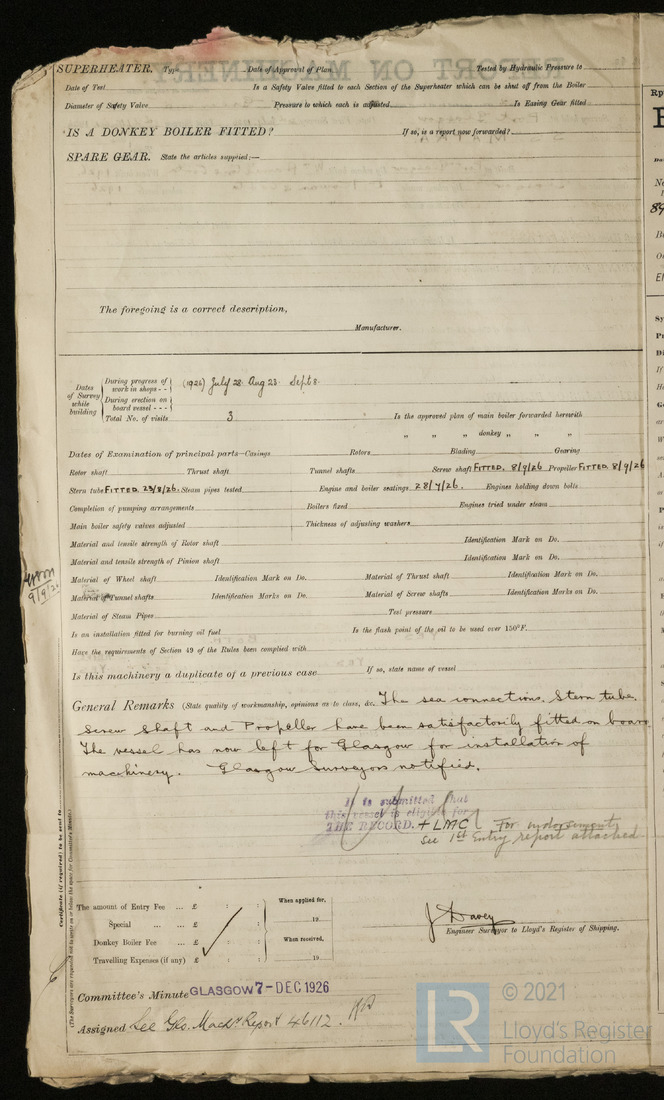 SUPERHEATER. Type Date of Approval of Plan Tested by Hydraulic Pressure to
Date of Test Is a Safety Valve fitted to each Section of the Superheater which can be shut off from the Boiler
Diameter of Safety Valve Pressure to which each is adjusted Is Easing Gear fitted
IS A DONKEY BOILER FITTED? If so, is a report now forwarded?
SPARE GEAR. State the articles supplied:—
The foregoing is a correct description,
Manufacturer.
Dates of Survey while building
During progress of work in shops - - (1926) July 28. Aug 23. Sept 8.
During erection on board vessel - - -
Total No. of visits 3 Is the approved plan of main boiler forwarded herewith
" " " donkey " " "
Dates of Examination of principal parts—Casings Rotors Blading Gearing
Rotor shaft Thrust shaft Tunnel shafts Screw shaft FITTED. 8/9/26 Propeller FITTED 8/9/26
Stern tube FITTED 23/8/26. Steam pipes tested Engine and boiler seatings 28/7/26. Engines holding down bolts
Completion of pumping arrangements Boilers fixed Engines tried under steam
Main boiler safety valves adjusted Thickness of adjusting washers
Material and tensile strength of Rotor shaft Identification Mark on Do.
Material and tensile strength of Pinion shaft Identification Mark on Do.
Material of Wheel shaft Identification Mark on Do. Material of Thrust shaft Identification Mark on Do.
Material of Tunnel shafts Identification Marks on Do. Material of Screw shafts Identification Marks on Do.
Material of Steam Pipes Test pressure
Is an installation fitted for burning oil fuel Is the flash point of the oil to be used over 150°F.
Have the requirements of Section 49 of the Rules been complied with
Is this machinery a duplicate of a previous case If so, state name of vessel
General Remarks (State quality of workmanship, opinions as to class, &c. The sea connections. Stern tube.
Screw Shaft and Propeller have been satisfactorily fitted on board
The vessel has now left for Glasgow for installation of
machinery. Glasgow Surveyors notified.
It is submitted that
this vessel is eligible for
THE RECORD. + LMC For endorsement
See 1st Entry report attached
Certificate (if required) to be sent to
(The Surveyors are requested not to write on or below the space for Committee's Minute.)
The amount of Entry Fee ... £ : : When applied for,
Special ... ... £ : : 19
Donkey Boiler Fee ... £ : : When received,
Travelling Expenses (if any) £ : : 19
J Davey
Engineer Surveyor to Lloyd's Register of Shipping.
Committee's Minute GLASGOW 7-DEC 1926
Assigned See Glo. Machy Report 46112.
LR © 2021
Lloyd's Register
Foundation